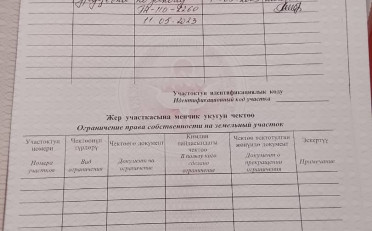 11.05.2023
Участоктун идентификациялык коду
Идентификационный код участка
Жер участкасына менчик укугун чектөө
Ограничение права собственности на земельный участок
Участоктун номери
Номера участков
Чектөөнүн түрлөрү
Вид ограничения
Чектөөгө документ
Документ на ограничение
Кимдин пайдасындагы чектөө
В пользу кого сделано ограничение
Чектөө токтотулган жөнүндө документ
Документ о прекращении ограничения
Эскертүү
Примечание